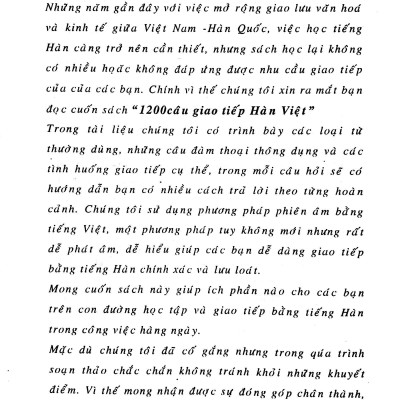 Những năm gần đây với việc mở rộng giao lưu văn hoá
và kinh tế giữa Việt Nam -Hàn Quốc, việc học tiếng
Hàn càng trở nên cần thiết, nhưng sách học lại không
có nhiều hoặc không đáp ứng được nhu cầu giao tiếp
của của các bạn. Chính vì thế chúng tôi xin ra mắt bạn
đọc cuốn sách “1200câu giao tiếp Hàn Việt”
Trong tài liệu chúng tôi có trình bày các loại từ
thường dùng, những câu đàm thoại thông dụng và các
tình huống giao tiếp cụ thể, trong mỗi câu hỏi sẽ có
hướng dẫn bạn có nhiều cách trả lời theo từng hoàn
cảnh. Chúng tôi sử dụng phương pháp phiên âm bằng
tiếng Việt, một phương pháp tuy không mới nhưng rất
dễ phát âm, dễ hiểu giúp các bạn dễ dàng giao tiếp
bằng tiếng Hàn chính xác và lưu loát.
Mong cuốn sách này giúp ích phần nào cho các bạn
trên con đường học tập và giao tiếp bằng tiếng Hàn
trong công việc hàng ngày.
Mặc dù chúng tôi đã cố gắng nhưng trong qúa trình
soạn thảo chắc chắn không tránh khỏi những khuyết
điểm. Vì thế mong nhận được sự đóng góp chân thành,